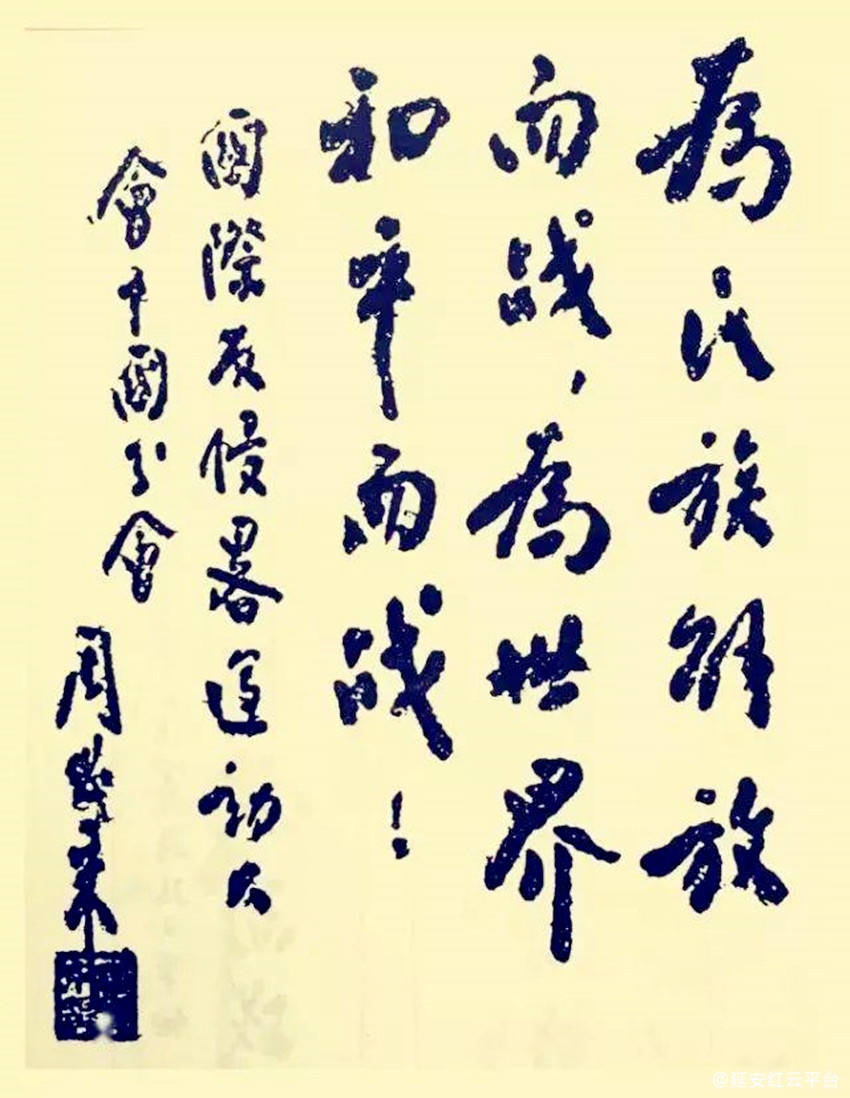 為民族解放
而战，為世界
和平而战！
國際反侵畧運動大
會中國分會
周恩来
@延安红云平台